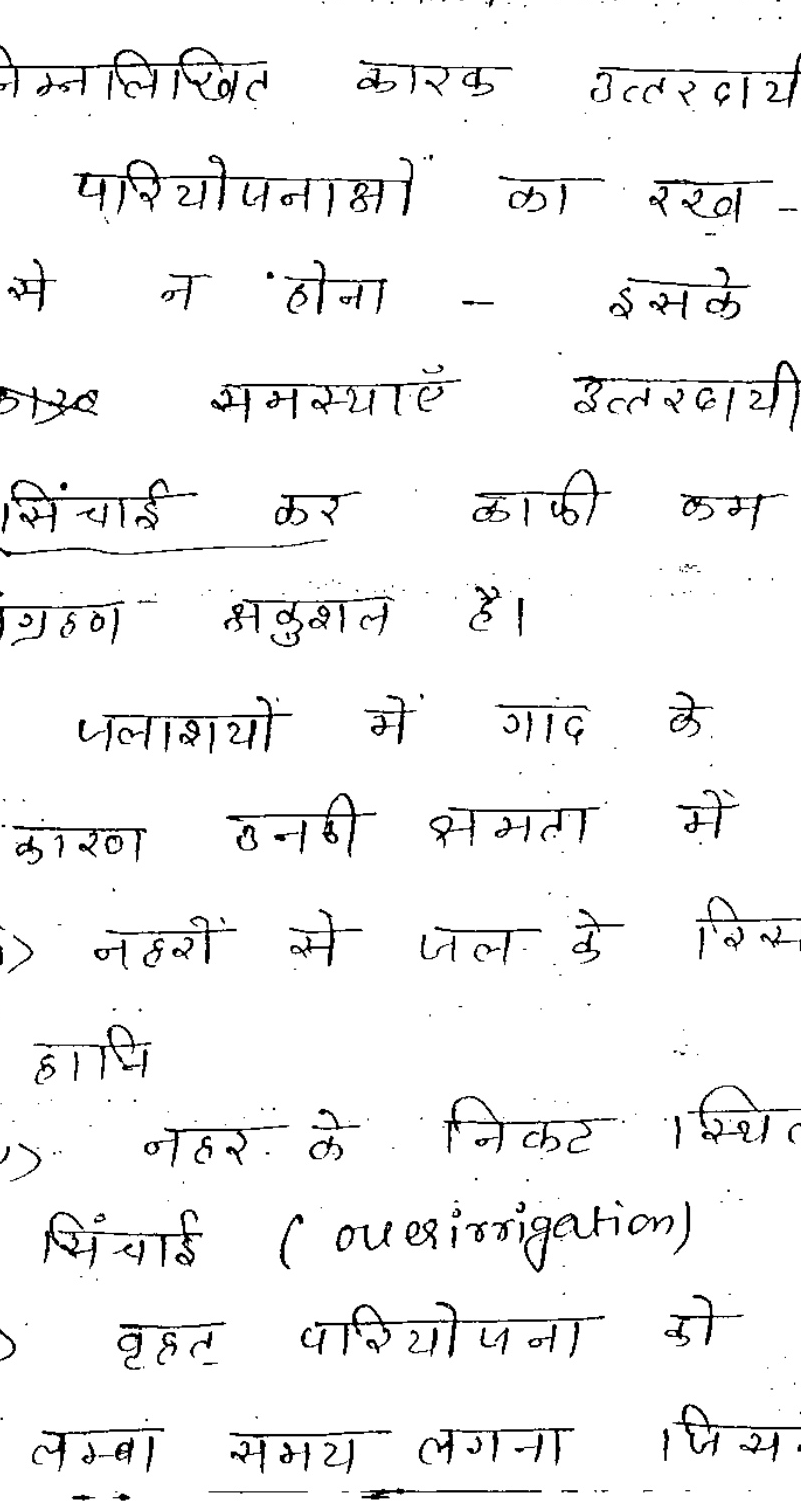 निम्नलिखित कारक उत्तरदायी
परियोजनाओं का रख -
से न होना - इसके
समस्याएँ उत्तरदायी
सिंचाई कर काफी कम
अकुशल है।
जलाशयों में गाद के
कारण उनकी क्षमता में
नहरों से जल के रिस
हानि
नहर के निकट स्थित
सिंचाई ( overirrigation)
वृहत परियोजना को
लम्बा समय लगना जिस